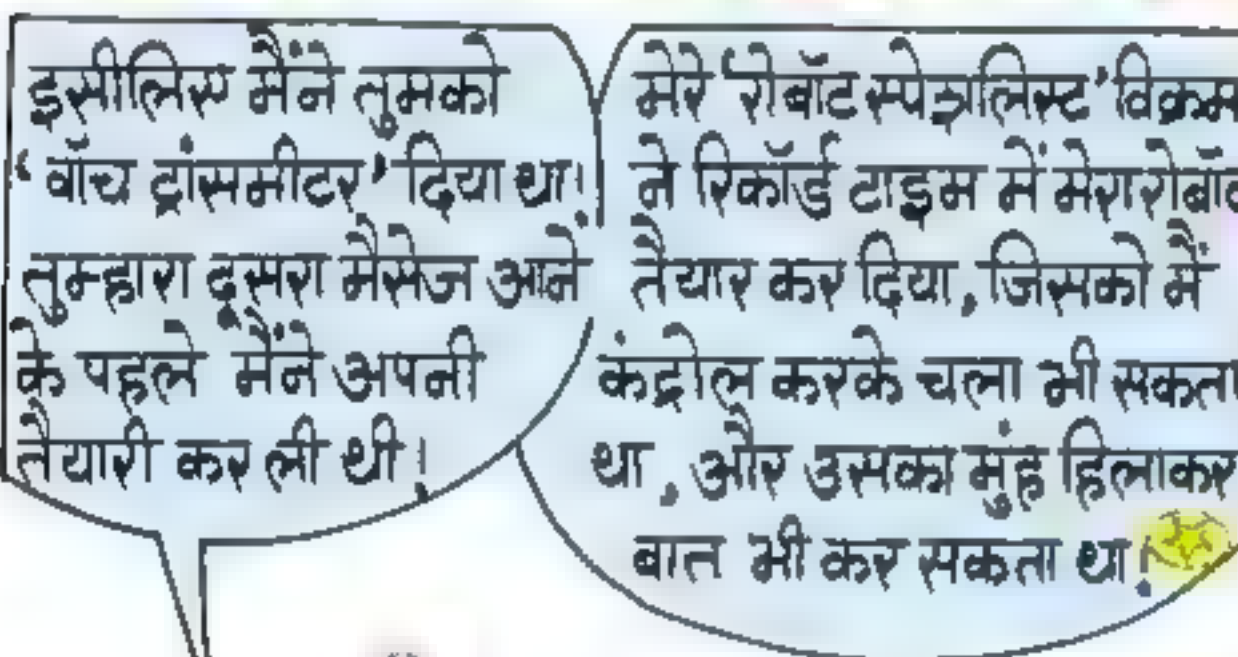 इसीलिए मैंने तुमको
‘वॉच ट्रांसमीटर’ दिया था।
तुम्हारा दूसरा मैसेज आने
के पहले मैंने अपनी
तैयारी कर ली थी!
मेरे ‘रोबॉट स्पेशलिस्ट’ विक्रम
ने रिकॉर्ड टाइम में मेरा रोबॉट
तैयार कर दिया, जिसको मैं
कंट्रोल करके चला भी सकता
था, और उसका मुंह हिलाकर
बात भी कर सकता था!